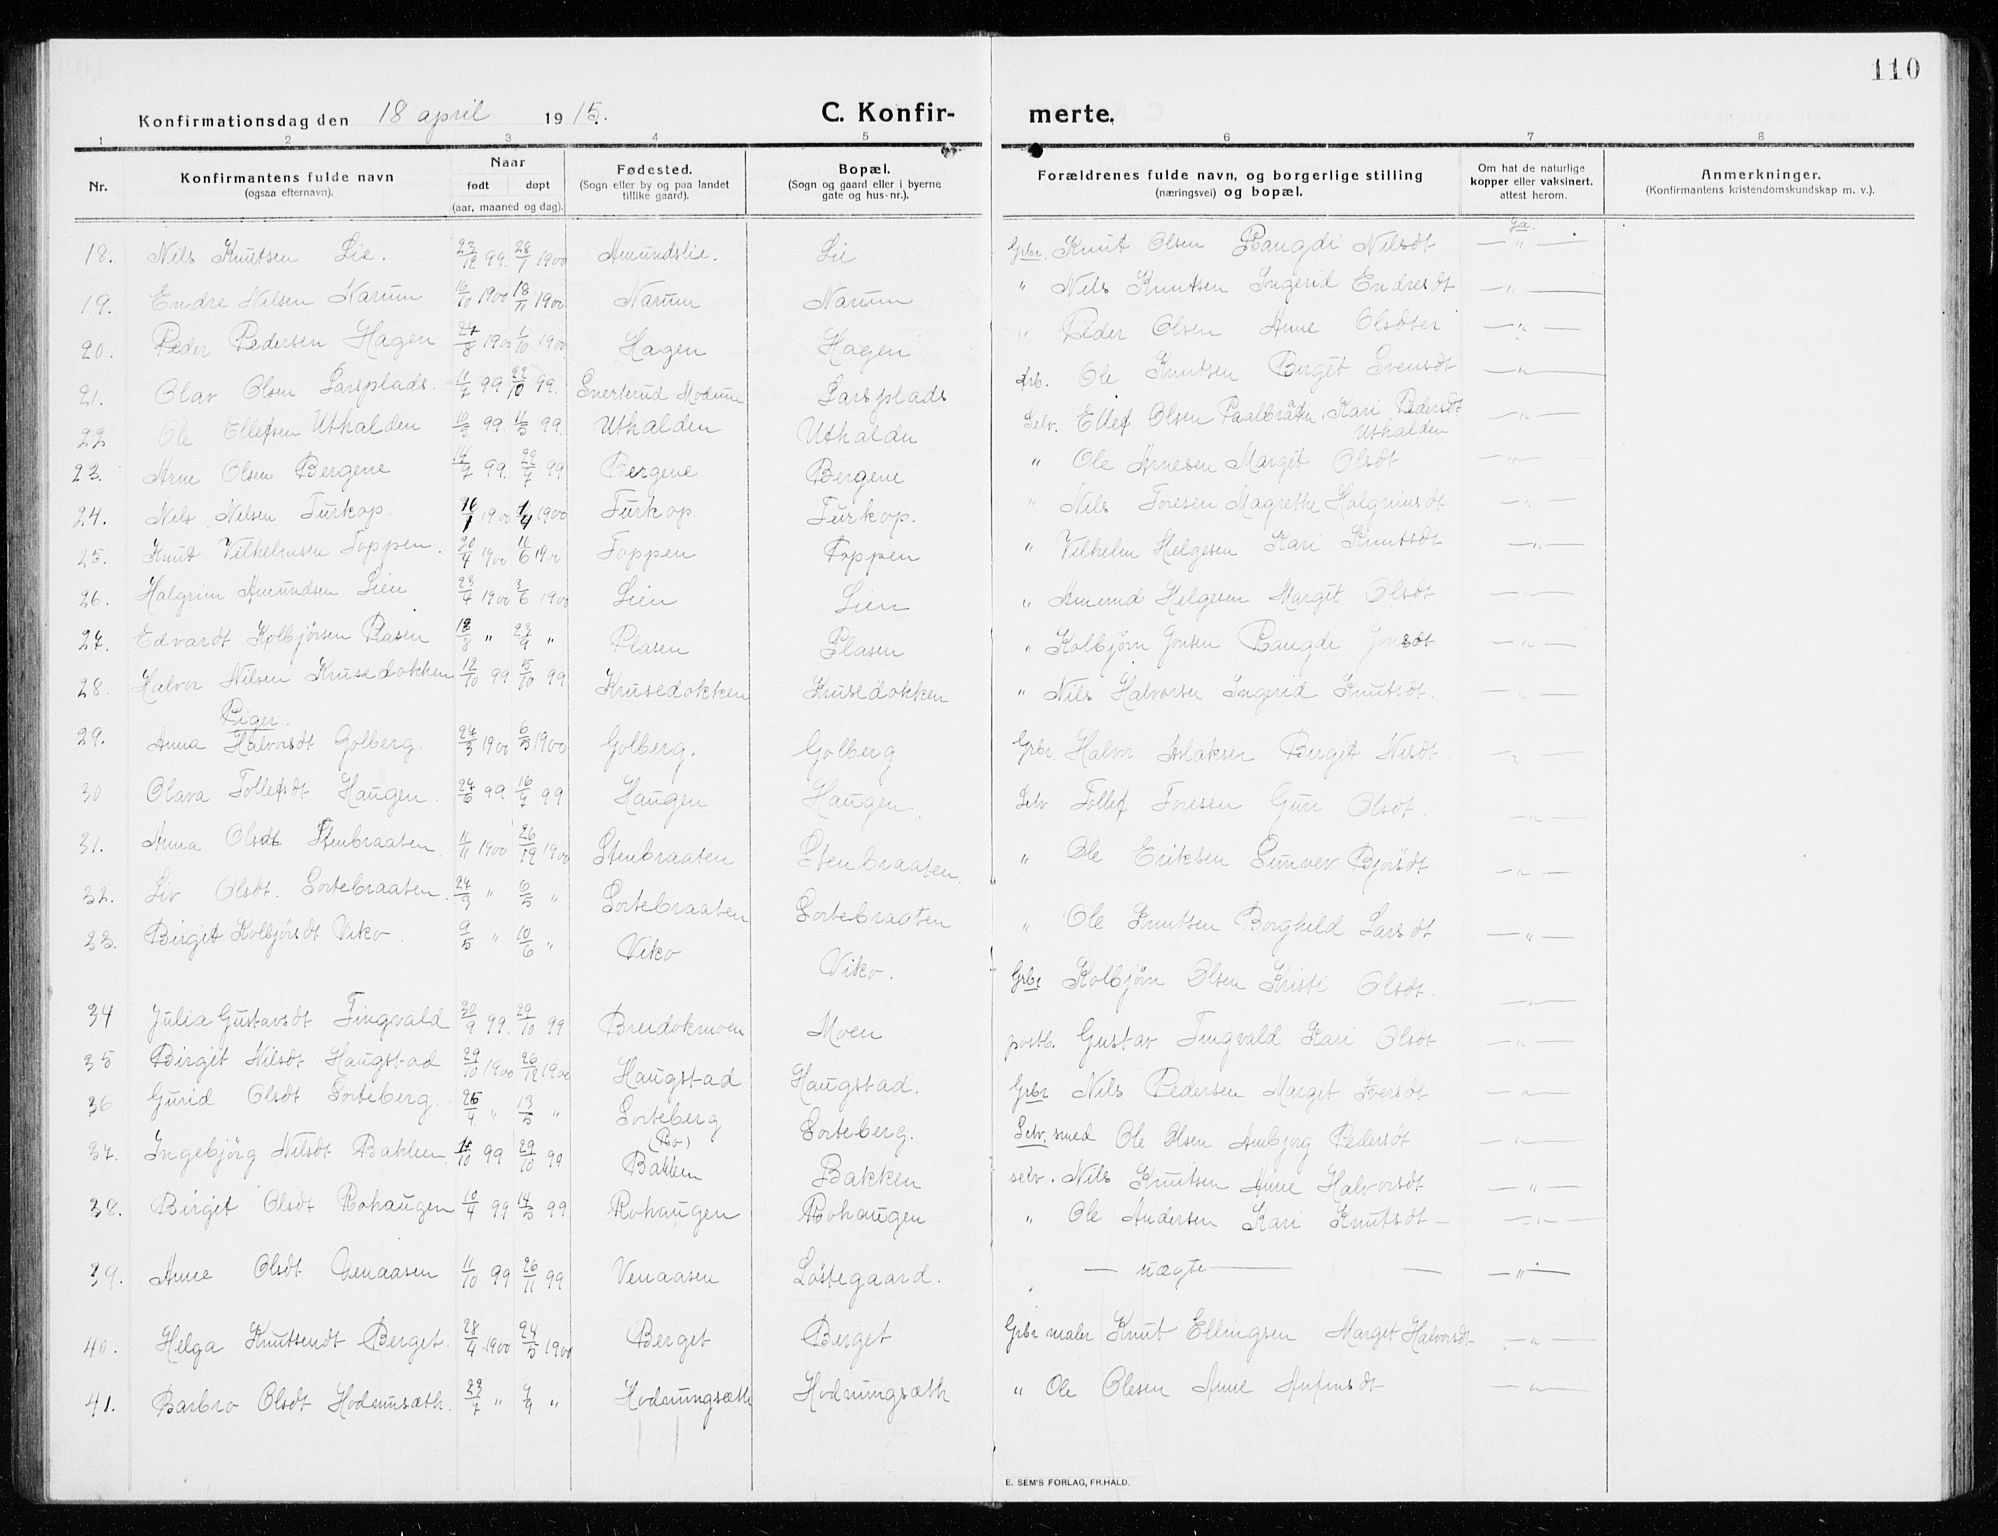 110
Konfirmationsdag den 18 april 1915. C. Konfir- merte.
1 2 3 4 5 6 7 8
Nr. Konfirmantens fulde navn (ogsaa efternavn). Naar født døpt (aar, maaned og dag). Fødested. (Sogn eller by og paa landet tillike gaard). Bopæl. (Sogn og gaard eller i byerne gate og hus-nr.). Forældrenes fulde navn, og borgerlige stilling (næringsvei) og bopæl. Om hat de naturlige kopper eller vaksinert. attest herom. Anmerkninger. (Konfirmantens kristendomskundskap m. v.).
Ja.
18. Nils Knutsen Lie. 23/12 99. 28/1 1900 Amundslie. Lie Grbr. Knut Olsen Rangdi Nilsdt — " —
19. Endre Nilsen Narum 16/10 1900 18/11 1900 Narum Narum " Nils Knutsen Ingerid Endresdt — " —
20. Peder Pedersen Hagen 27/8 1900 1/10 1900 Hagen Hagen " Peder Olsen Anne Olsdter — " —
21. Olav Olsen Larsplads. 11/7 99 22/10 99. Snerterud Modum Larsplads Arb. Ole Knutsen Birgit Svensdt — " —
22 Ole Ellefsen Uthalden 16/3 99. 16/5 99. Uthalden Uthalden Selv. Ellef Olsen Paalbråten, Kari Pedersdt Uthalden — " —
23. Arne Olsen Bergene 14/7 99. 22/7 99 Bergene Bergene " Ole Arnesen Margit Olsdt — " —
24. Nils Nilsen Turkop. 16/1 1900 1/4 1900 Turkop. Turkop. " Nils Toresen Magrethe Halgrimsdt — " —
25. Knut Vilhelmsen Toppen. 20/4 1900 16/6 1900 Toppen Toppen " Vilhelm Helgesen Kari Knutsdt — " —
26. Halgrim Amundsen Lien 23/4 1900 3/6 1900 Lien Lien " Amund Helgesen Margit Olsdt — " —
27. Edvardt Kolbjørsen Plasen 18/8 " 23/9 " Plasen Plasen " Kolbjørn Jonsen Rangdi Jonsdt — " —
28. Halvor Nilsen Krusedokken 12/10 99 5/10 99 Krusedokken Krusedokken " Nils Halvorsen Ingerid Knutsdt. — " —
Piger.
29. Anna Halvorsdt Golberg. 24/3 1900 6/5 1900 Golberg. Golberg Grbr. Halvor Aslaksen Birgit Nilsdt. — " —
30 Olava Tollefsdt Haugen. 24/6 99 16/7 99 Haugen Haugen Selv. Tollef Toresen Guri Olsdt. — " —
31. Anna Olsdt Stenbraaten 11/11 1900 26/12 1900 Stenbraaten Stenbraaten. " Ole Eriksen Sunnev Bjørsdt — " —
32. Liv Olsdt. Sortebraaten. 27/3 " 6/5 " Sortebraaten Sortebraaten " Ole Knutsen Borghild Larsdt — " —
33. Birgit Kolbjørsdt Viko. 9/5 " 10/6 " Viko Viko. Grbr Kolbjørn Olsen Kristi Olsdt. — " —
34 Julia Gustavsdt Tingvald 20/9 99. 29/10 99 Breidokmoen Moen postb. Gustav Tingvald Kari Olsdt — " —
35 Birgit Nilsdt Haugstad 29/10 1900 26/12 1900 Haugstad Haugstad. Grbr Nils Pedersen Margit Iversdt — " —
36 Gurid Olsdt Sorteberg. 25/4 " 13/5 " Sorteberg (Ro) Sorteberg. Selv. smed Ole Olsen Ambjørg Pedersdt — " —
37. Ingebjörg Nilsdt Bakken. 15/10 99 29/10 99 Bakken Bakken selv. Nils Knutsen Anne Halvorsdt — " —
38. Birgit Olsdt Rohaugen 10/4 99 14/5 99 Rohaugen Rohaugen " Ole Andersen Kari Knutsdt — — " —
39. Anne Olsdt Venaasen 11/10 99 26/11 99 Venaasen Løstegaard. — uægte — — — " —
40. Helga Knutsendt Berget. 28/4 1900 24/5 1900 Berget Berget Grbr maler Knut Ellingsen Margit Halvorsdt — " —
41. Barbro Olsdt Hodnunsæth. 23/7 " 9/9 " Hodnungsæth Hodnungsæth " Ole Olesen Anne Anfinsdt — " —
E. SEM'S FORLAG, FR.HALD.